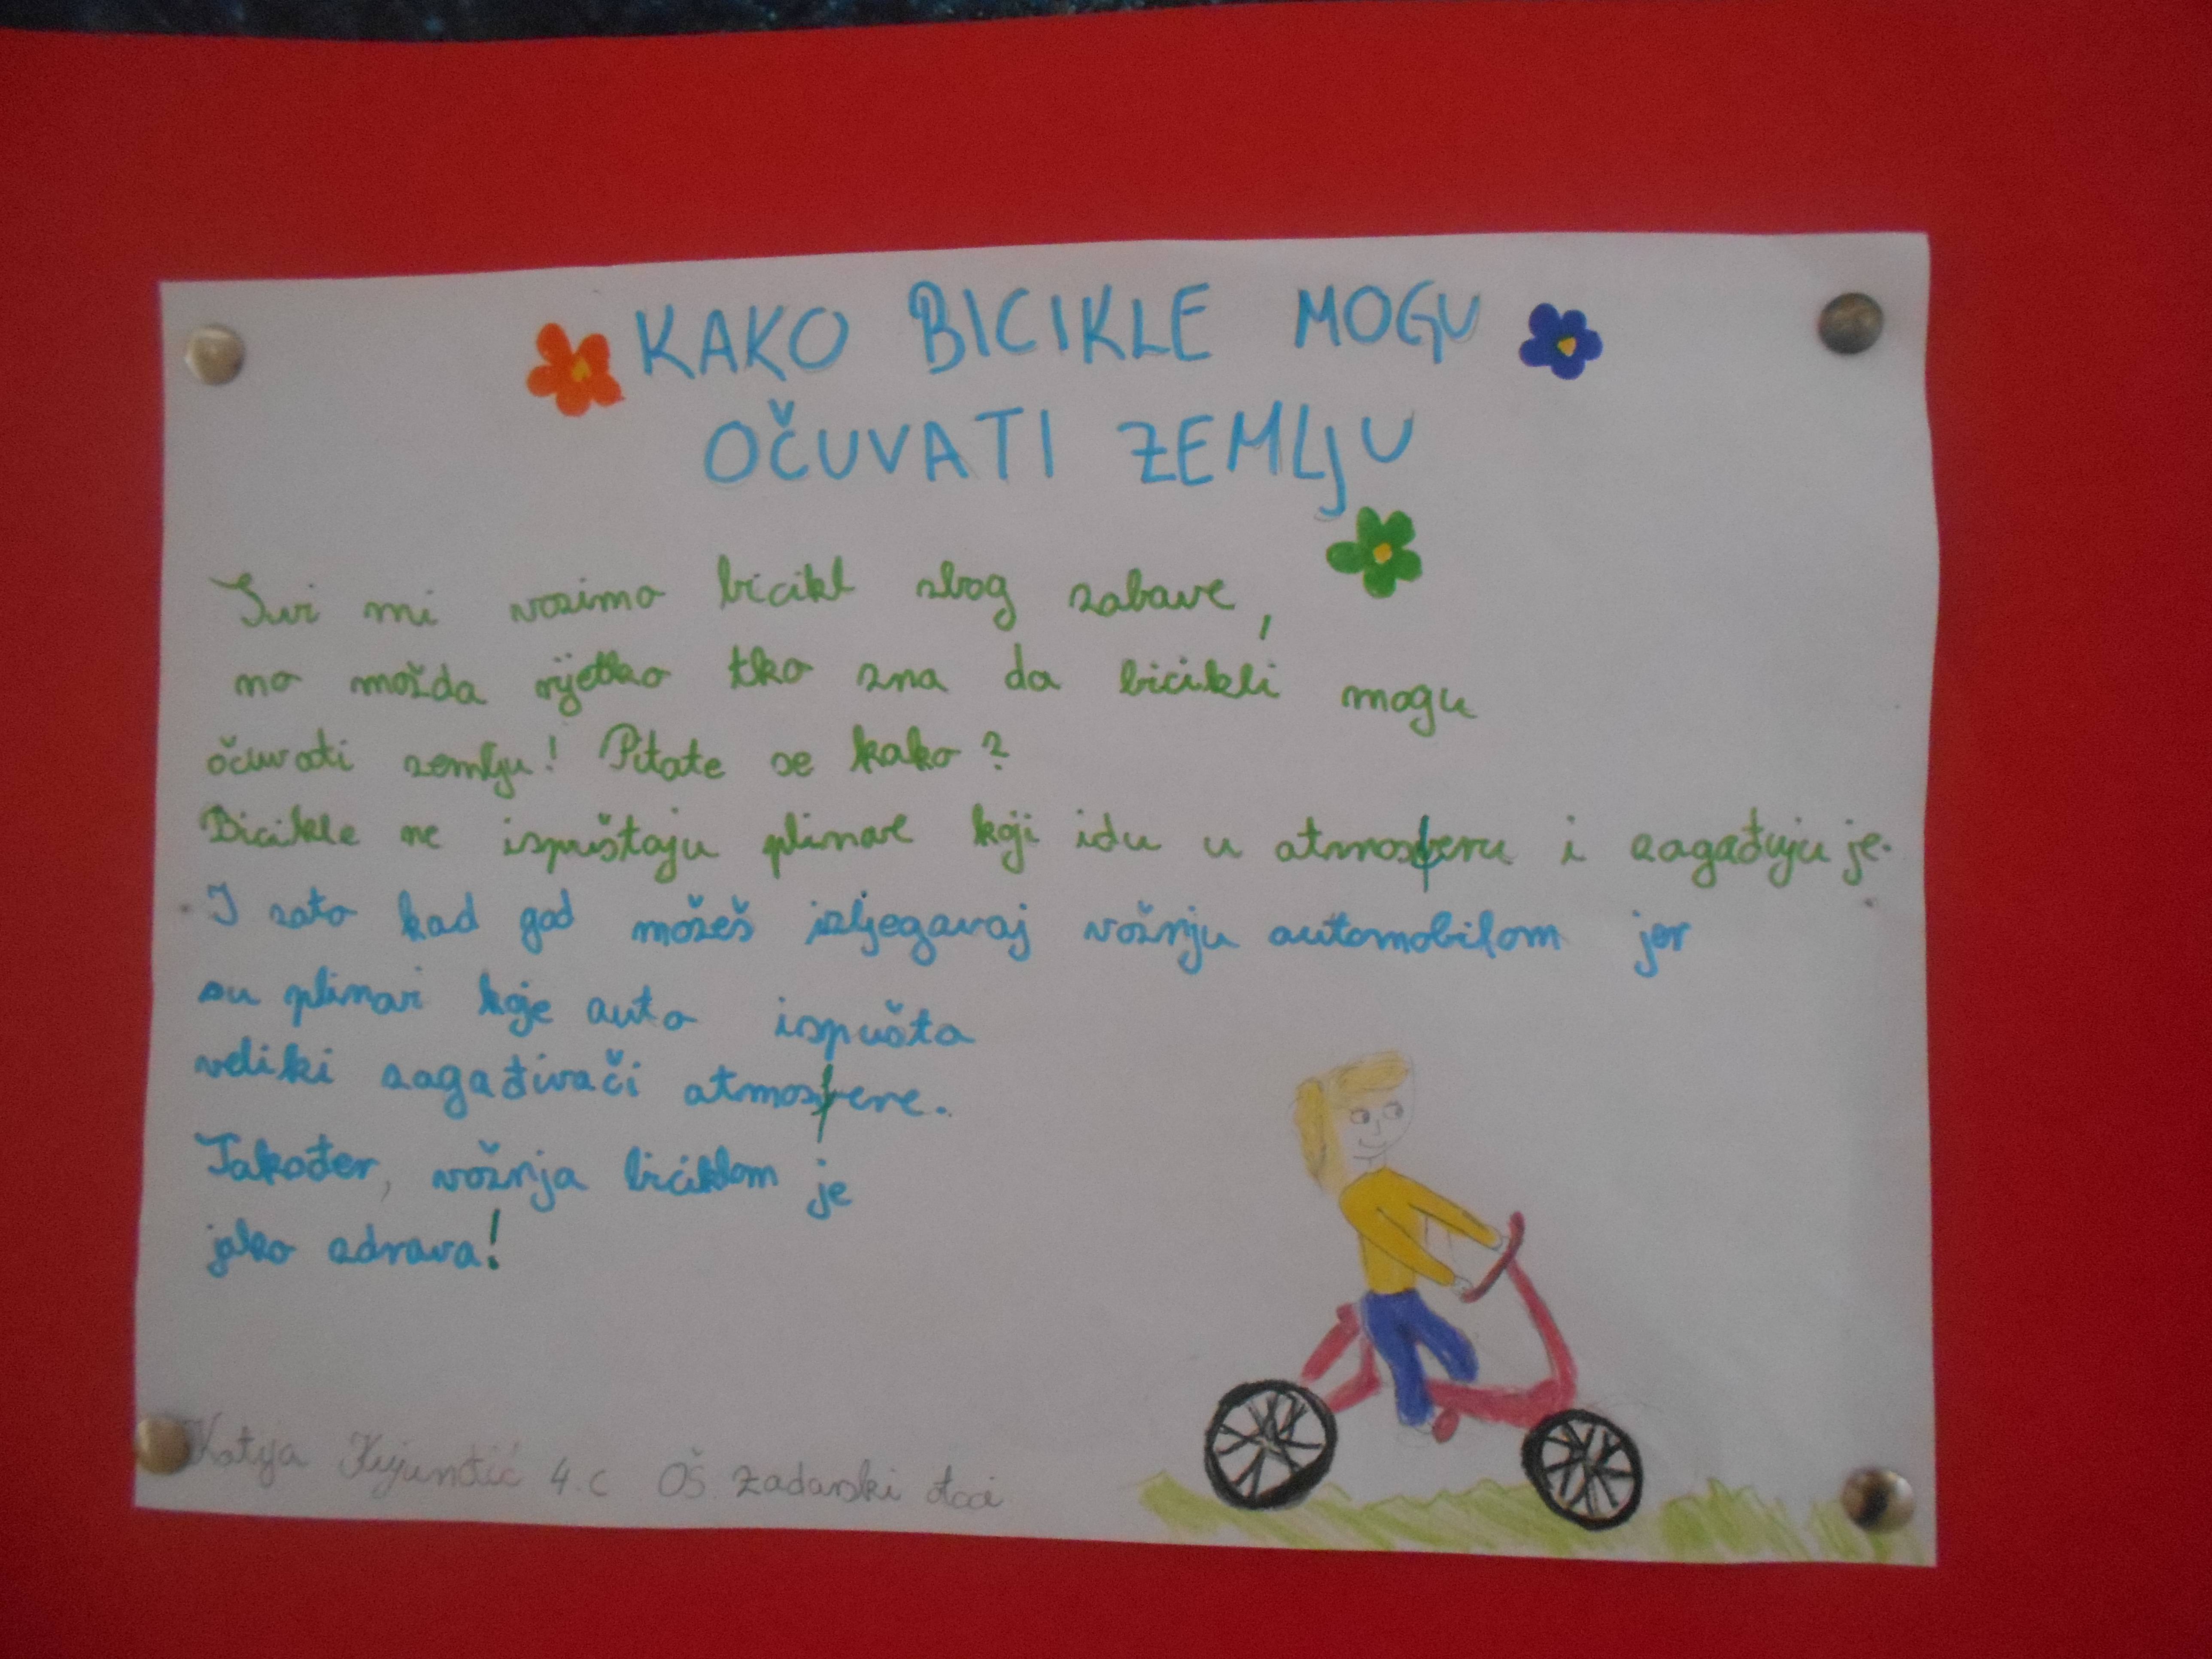 KAKO BICIKLE MOGU
OČUVATI ZEMLJU
Svi mi vozimo bicikl zbog zabave,
no možda rijetko tko zna da bicikli mogu
očuvati zemlju! Pitate se kako?
Bicikle ne ispuštaju plinove koji idu u atmosferu i zagađuju je.
I zato kad god možeš izbjegavaj vožnju automobilom jer
su plinovi koje auto ispušta
veliki zagađivači atmosfere.
Također, vožnja biciklom je
jako zdrava!
Katja Kujundžić 4.c OŠ Zadarski otoci